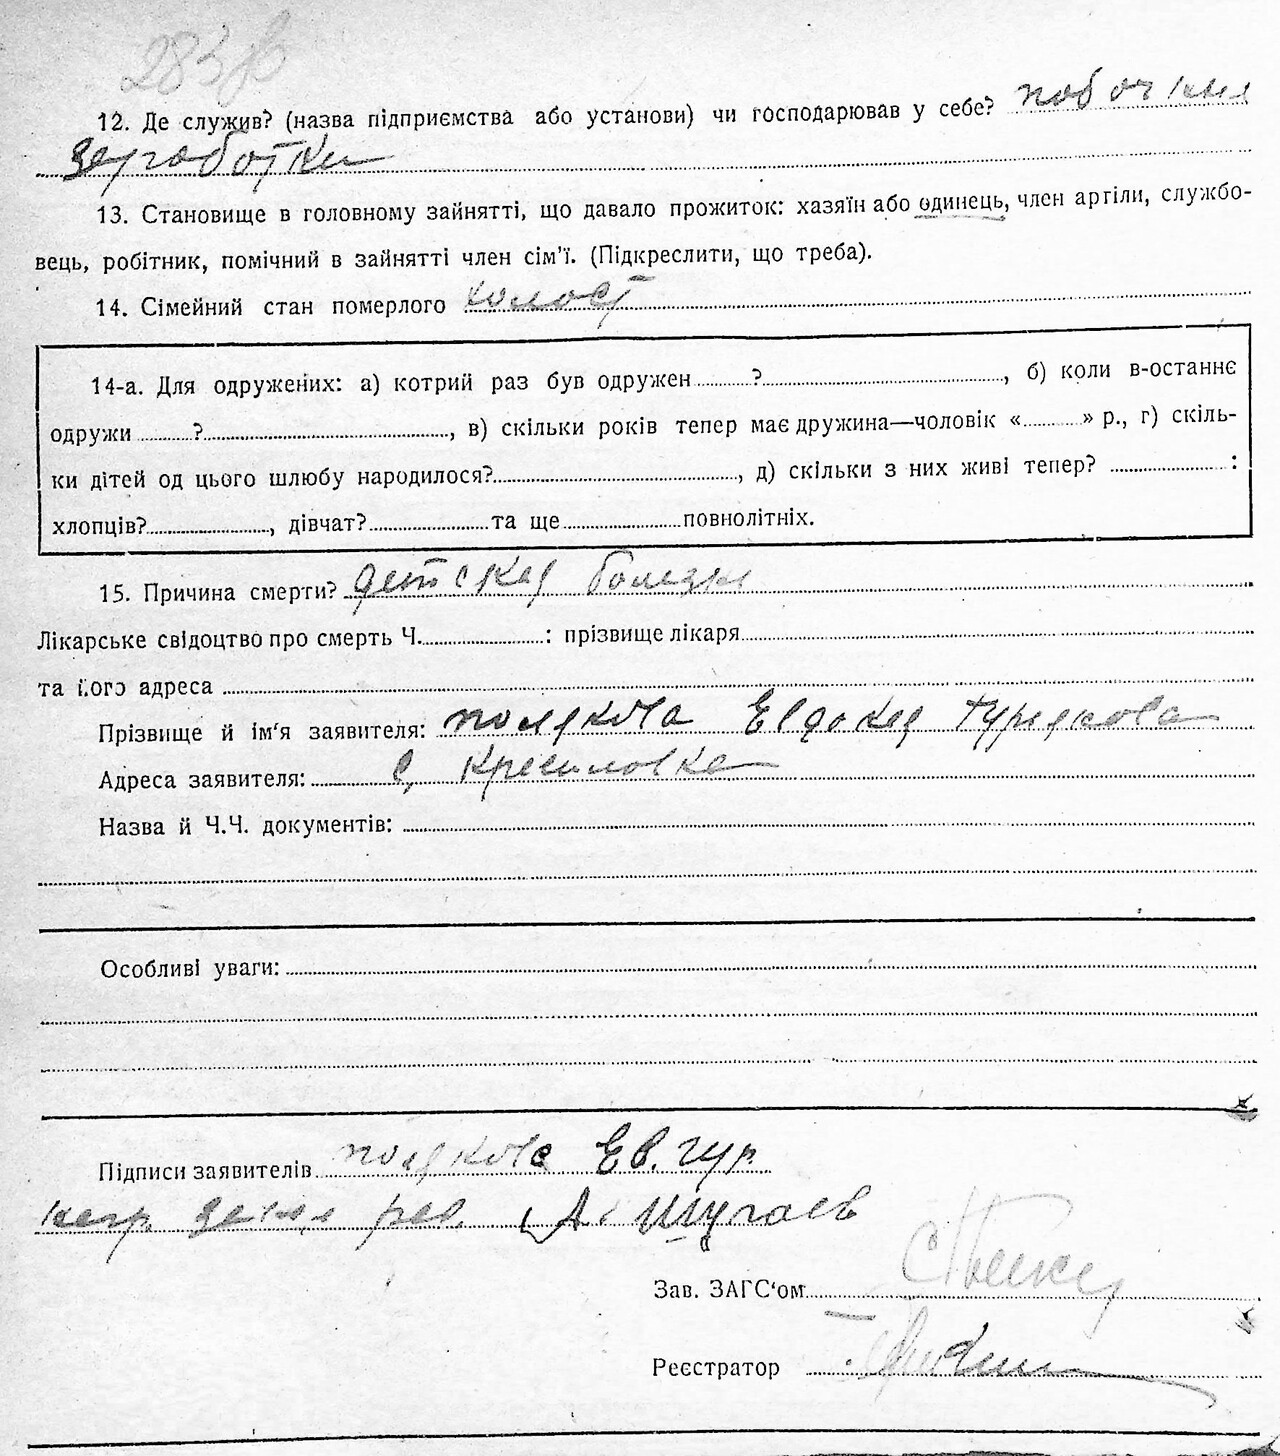 283
12. Де служив? (назва підприємства або установи) чи господарював у себе? побочные
заработки
13. Становище в головному зайнятті, що давало прожиток: хазяїн або одинець, член артіли, службо-
вець, робітник, помічний в зайнятті член сім'ї. (Підкреслити, що треба).
14. Сімейний стан померлого холост
14-а. Для одружених: а) котрий раз був одружен ? , б) коли в-останнє
одружи ? , в) скільки років тепер має дружина—чоловік « » р., г) скіль-
ки дітей од цього шлюбу народилося? , д) скільки з них живі тепер? :
хлопців? , дівчат? та ще повнолітніх.
15. Причина смерти? детская болезн
Лікарське свідоцтво про смерть Ч. : прізвище лікаря
та його адреса
Прізвище й ім'я заявителя: полякова Евдокея
Адреса заявителя: с, кресиловка
Назва й Ч.Ч. документів:
Особливі уваги:
Підписи заявителів полякова Ев. гур.
негр. заяв. рос. А. Шугаев
Зав. ЗАГС'ом
Реєстратор